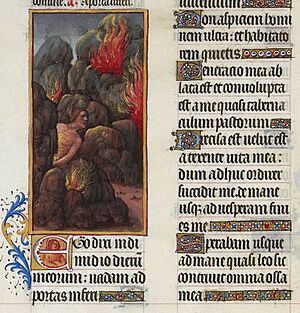 Ego dixi in di
midio dierum
meorum: uadam ad
portas inferi
Non aspiciam homi
nem ultra: et habitato
rem quietis
Generacio mea ab
lata est et conuolupta
est a me quasi taberna
culum pastorum
Precisa est uelut est
a texente uita mea:
dum adhuc ordirer
succidit me. de mane
usque ad uesperam fini
es me
Sperabam usque
ad mane quasi leo sic
contriuit omnia ossa
mea